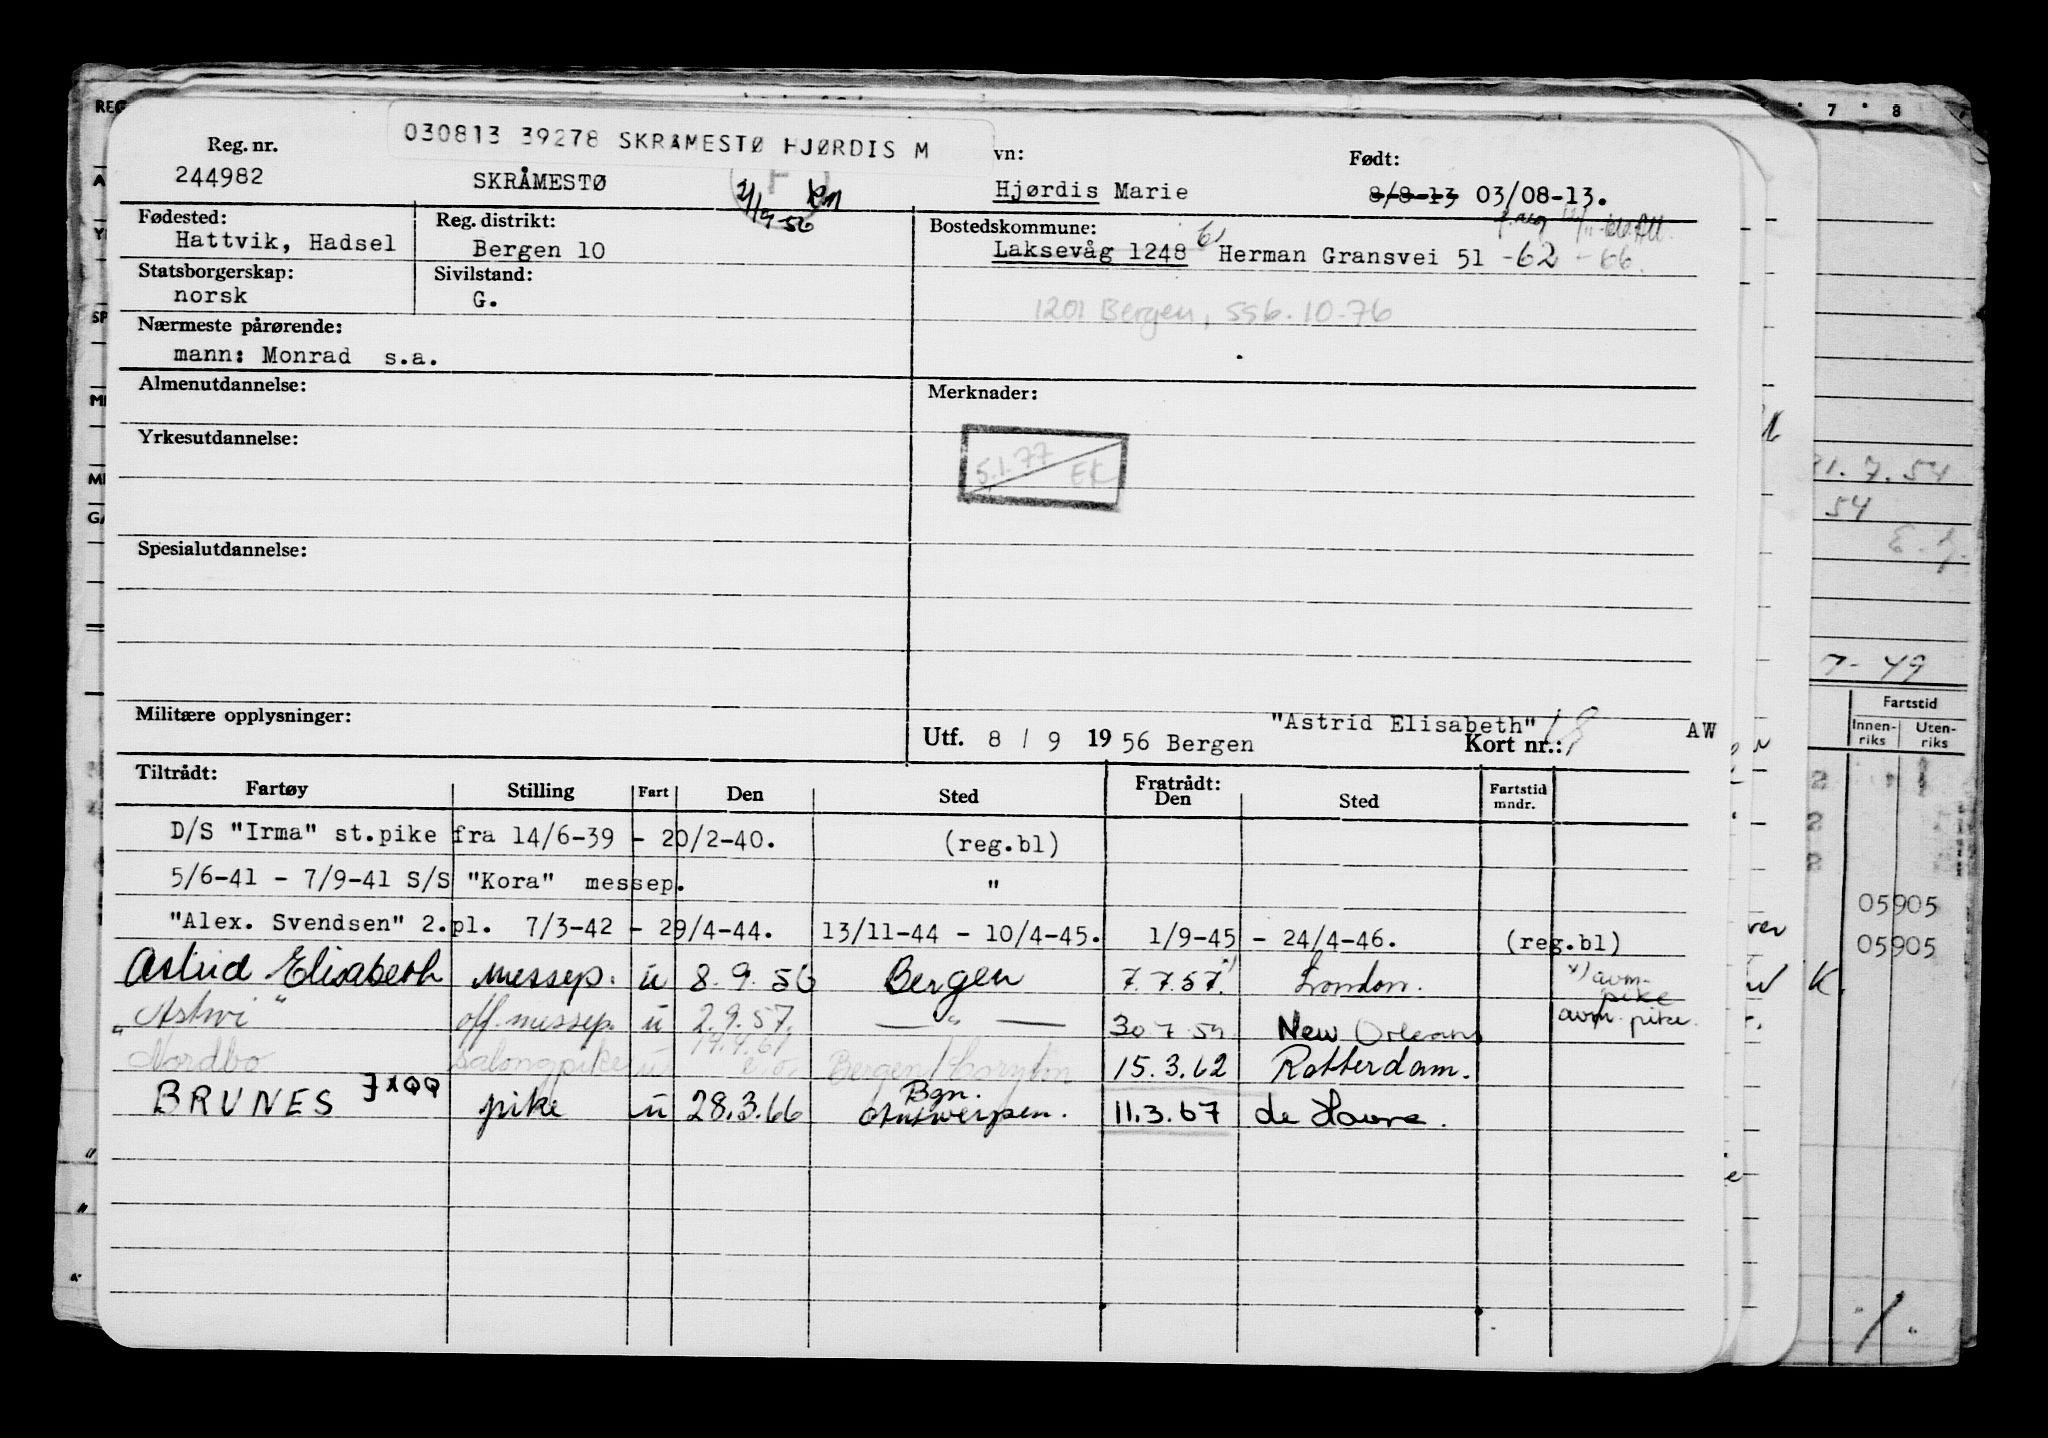 030813 39278 SKRÅMESTØ HJØRDIS M
Reg. nr.
244982
SKRÅMESTØ
vn:
Hjørdis Marie
Født:
8/8-13 03/08-13.
2/9-56
Fødested:
Hattvik, Hadsel
Reg. distrikt:
Bergen 10
Bostedskommune:
Laksevåg 1248 61 Herman Gransvei 51 -62 -66.
Statsborgerskap:
norsk
Sivilstand:
G.
1201 Bergen, ssb. 10-76
Nærmeste pårørende:
mann: Monrad s.a.
Almenutdannelse:
Merknader:
Yrkesutdannelse:
5.1.77 EK
Spesialutdannelse:
Militære opplysninger:
"Astrid Elisabeth"
AW
Utf. 8 / 9 19 56 Bergen
Kort nr.:
Tiltrådt:
Fartøy Stilling Fart Den Sted
Fratrådt:
Den Sted
Fartstid
mndr.
D/S "Irma" st.pike fra 14/6-39 - 20/2-40. (reg.bl)
5/6-41 - 7/9-41 S/S "Kora" messep. "
"Alex. Svendsen" 2.pl. 7/3-42 - 29/4-44. 13/11-44 - 10/4-45. 1/9-45 - 24/4-46. (reg.bl)
Astrid Elisabeth messep. u 8.9.56 Bergen 7.7.57. x) London. x) avm-
pike
"Astwi" off. messep. u 2.9.57. — " — 30.7.59 New Orleans avm. pike.
Nordbo salongpike u 14.4.61 Bergen 15.3.62 Rotterdam.
BRUNES JXQQ pike u 28.3.66 Bgn.
Antwerpen. 11.3.67 de Havre.
REG
7 8
21.7.54
54
7-49
Fartstid
Innen-
riks
Uten-
riks
05905
05905
K.